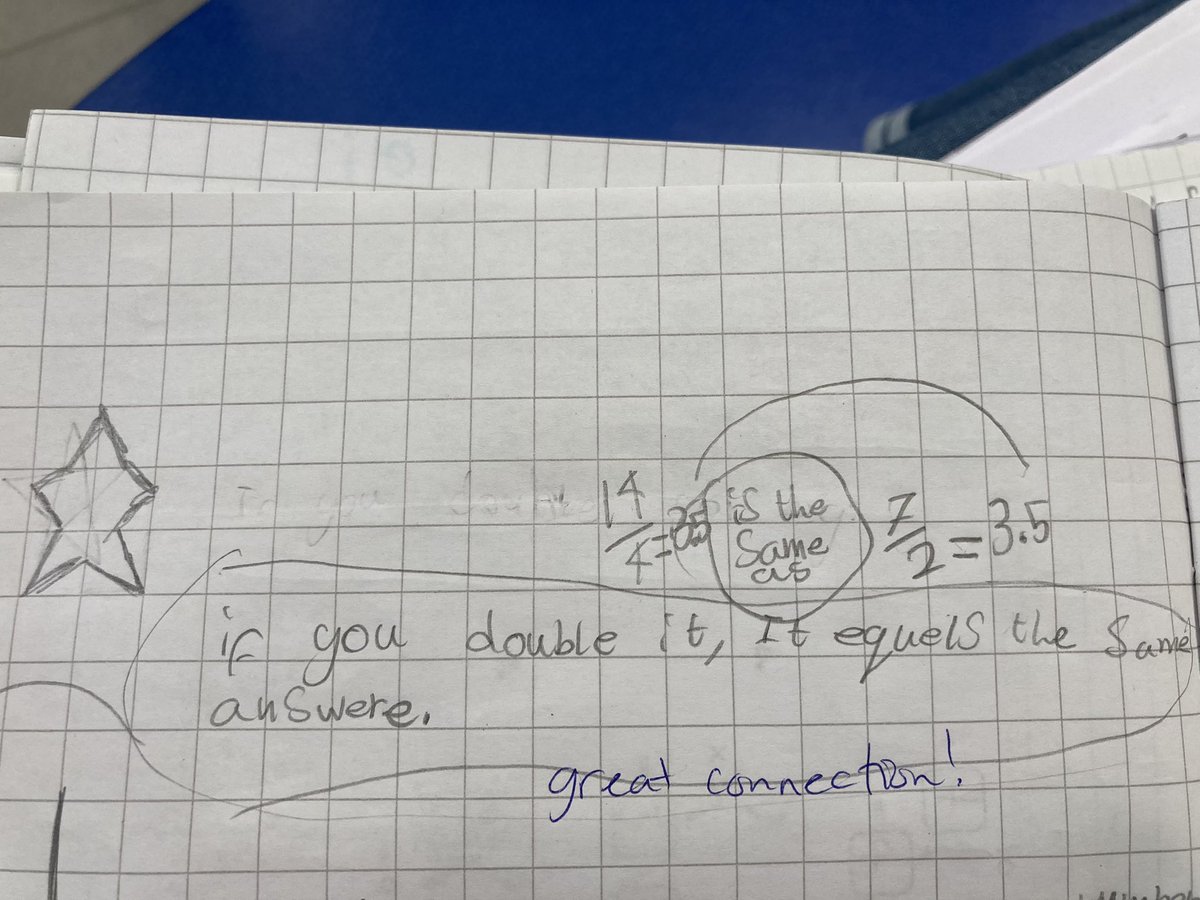 14/4 = 3.5 is the same as 7/2 = 3.5
if you double it, It equels the same
answere.
great connection!